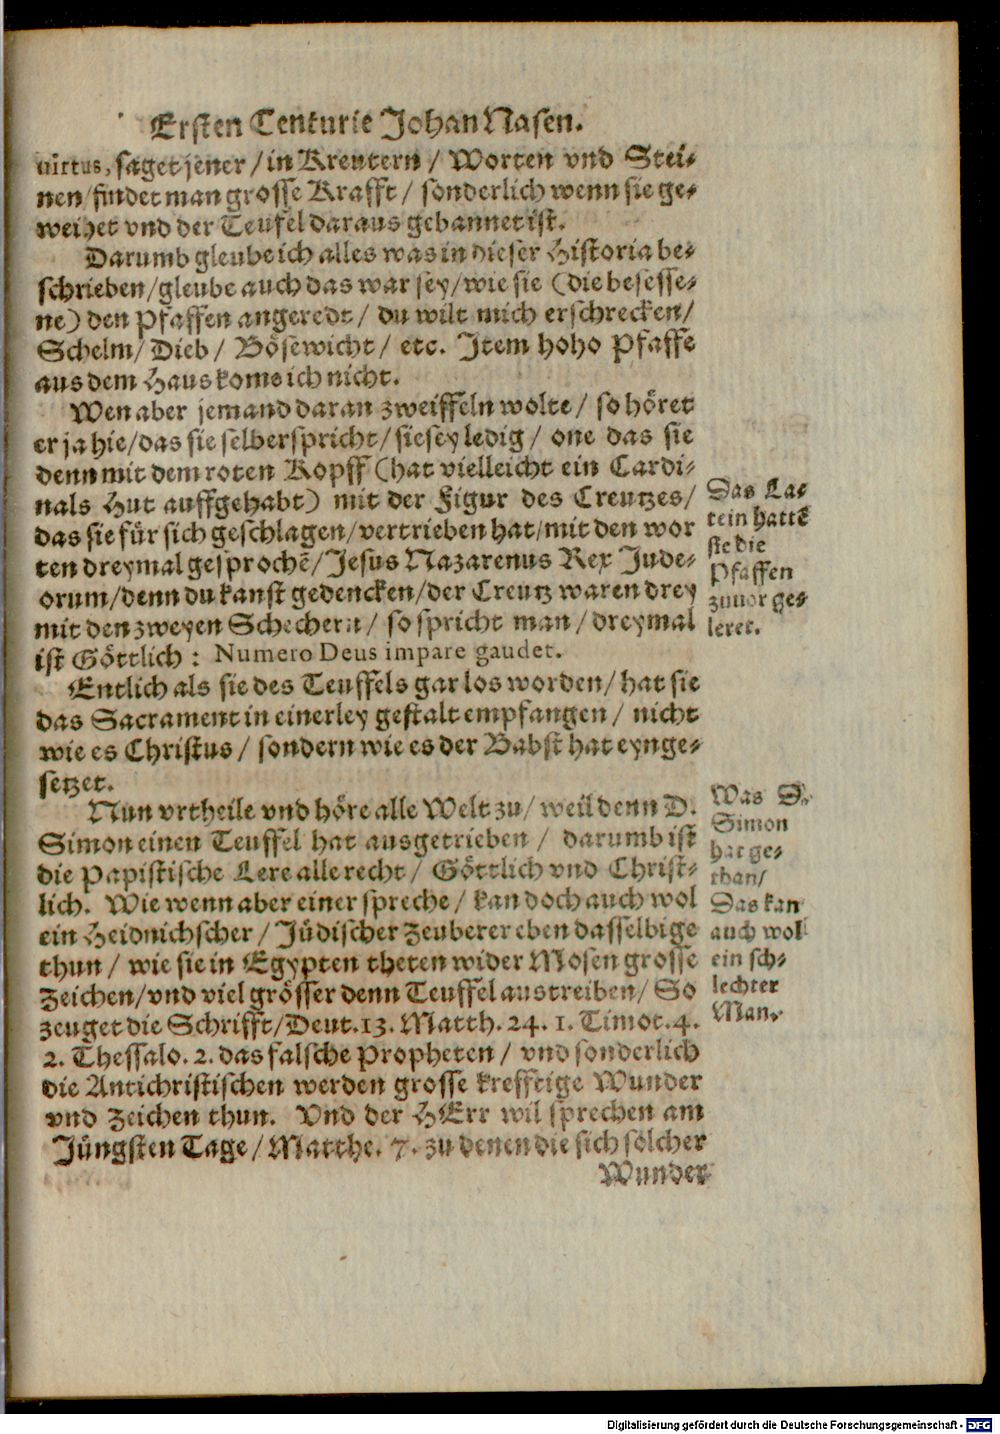 Ersten Centurie Johan Nasen.
uirtus, saget jener / in Kreutern / Worten vnd Stei-
nen / findet man grosse Krafft / sonderlich wenn sie ge-
weihet vnd der Teufel daraus gebannet ist.
Darumb gleube ich alles was in dieser Historia be-
schrieben / gleube auch das war sey / wie sie (die besesse-
ne) den Pfaffen angeredt / du wilt mich erschrecken /
Schelm / Dieb / Bösewicht / etc. Item hoho Pfaffe
aus dem Haus kome ich nicht.
Wen aber jemand daran zweiffeln wolte / so höret
er ja hie / das sie selber spricht / sie sey ledig / one das sie
denn mit dem roten Kopff (hat vielleicht ein Cardi-
nals Hut auffgehabt) mit der Figur des Creutzes /
das sie für sich geschlagen / vertrieben hat / mit den wor
ten dreymal gesprochẽ / Jesus Nazarenus Rex Jude-
orum / denn du kanst gedencken / der Creutz waren drey
mit den zweyen Schechern / so spricht man / dreymal
ist Göttlich : Numero Deus impare gaudet.
Das La-
tein hattẽ
sie die
Pfaffen
zuuor ge-
leret.
Entlich als sie des Teuffels gar los worden / hat sie
das Sacrament in einerley gestalt empfangen / nicht
wie es Christus / sondern wie es der Babst hat eynge-
setzet.
Nun vrtheile vnd höre alle Welt zu / weil denn D.
Simon einen Teuffel hat ausgetrieben / darumb ist
die Papistische Lere alle recht / Göttlich vnd Christ-
lich. Wie wenn aber einer spreche / kan doch auch wol
ein Heidnichscher / Jüdischer Zeuberer eben dasselbige
thun / wie sie in Egypten theten wider Mosen grosse
Zeichen / vnd viel grösser denn Teuffel austreiben / So
zeuget die Schrifft / Deut. 13. Matth. 24. 1. Timot. 4.
2. Thessalo. 2. das falsche Propheten / vnd sonderlich
die Antichristischen werden grosse krefftige Wunder
vnd Zeichen thun. Vnd der HErr wil sprechen am
Jüngsten Tage / Matthe. 7. zu denen die sich solcher
Wunder
Was D.
Simon
hat ge-
than /
Das kan
auch wol
ein sch-
lechter
Man.
Digitalisierung gefördert durch die Deutsche Forschungsgemeinschaft - DFG